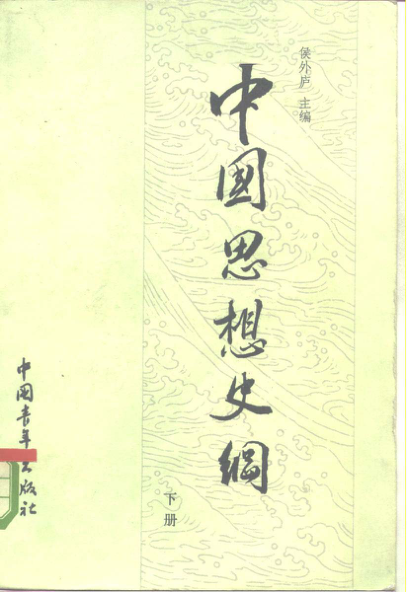 侯外庐 主编
中国思想史纲
下册
中国青年出版社